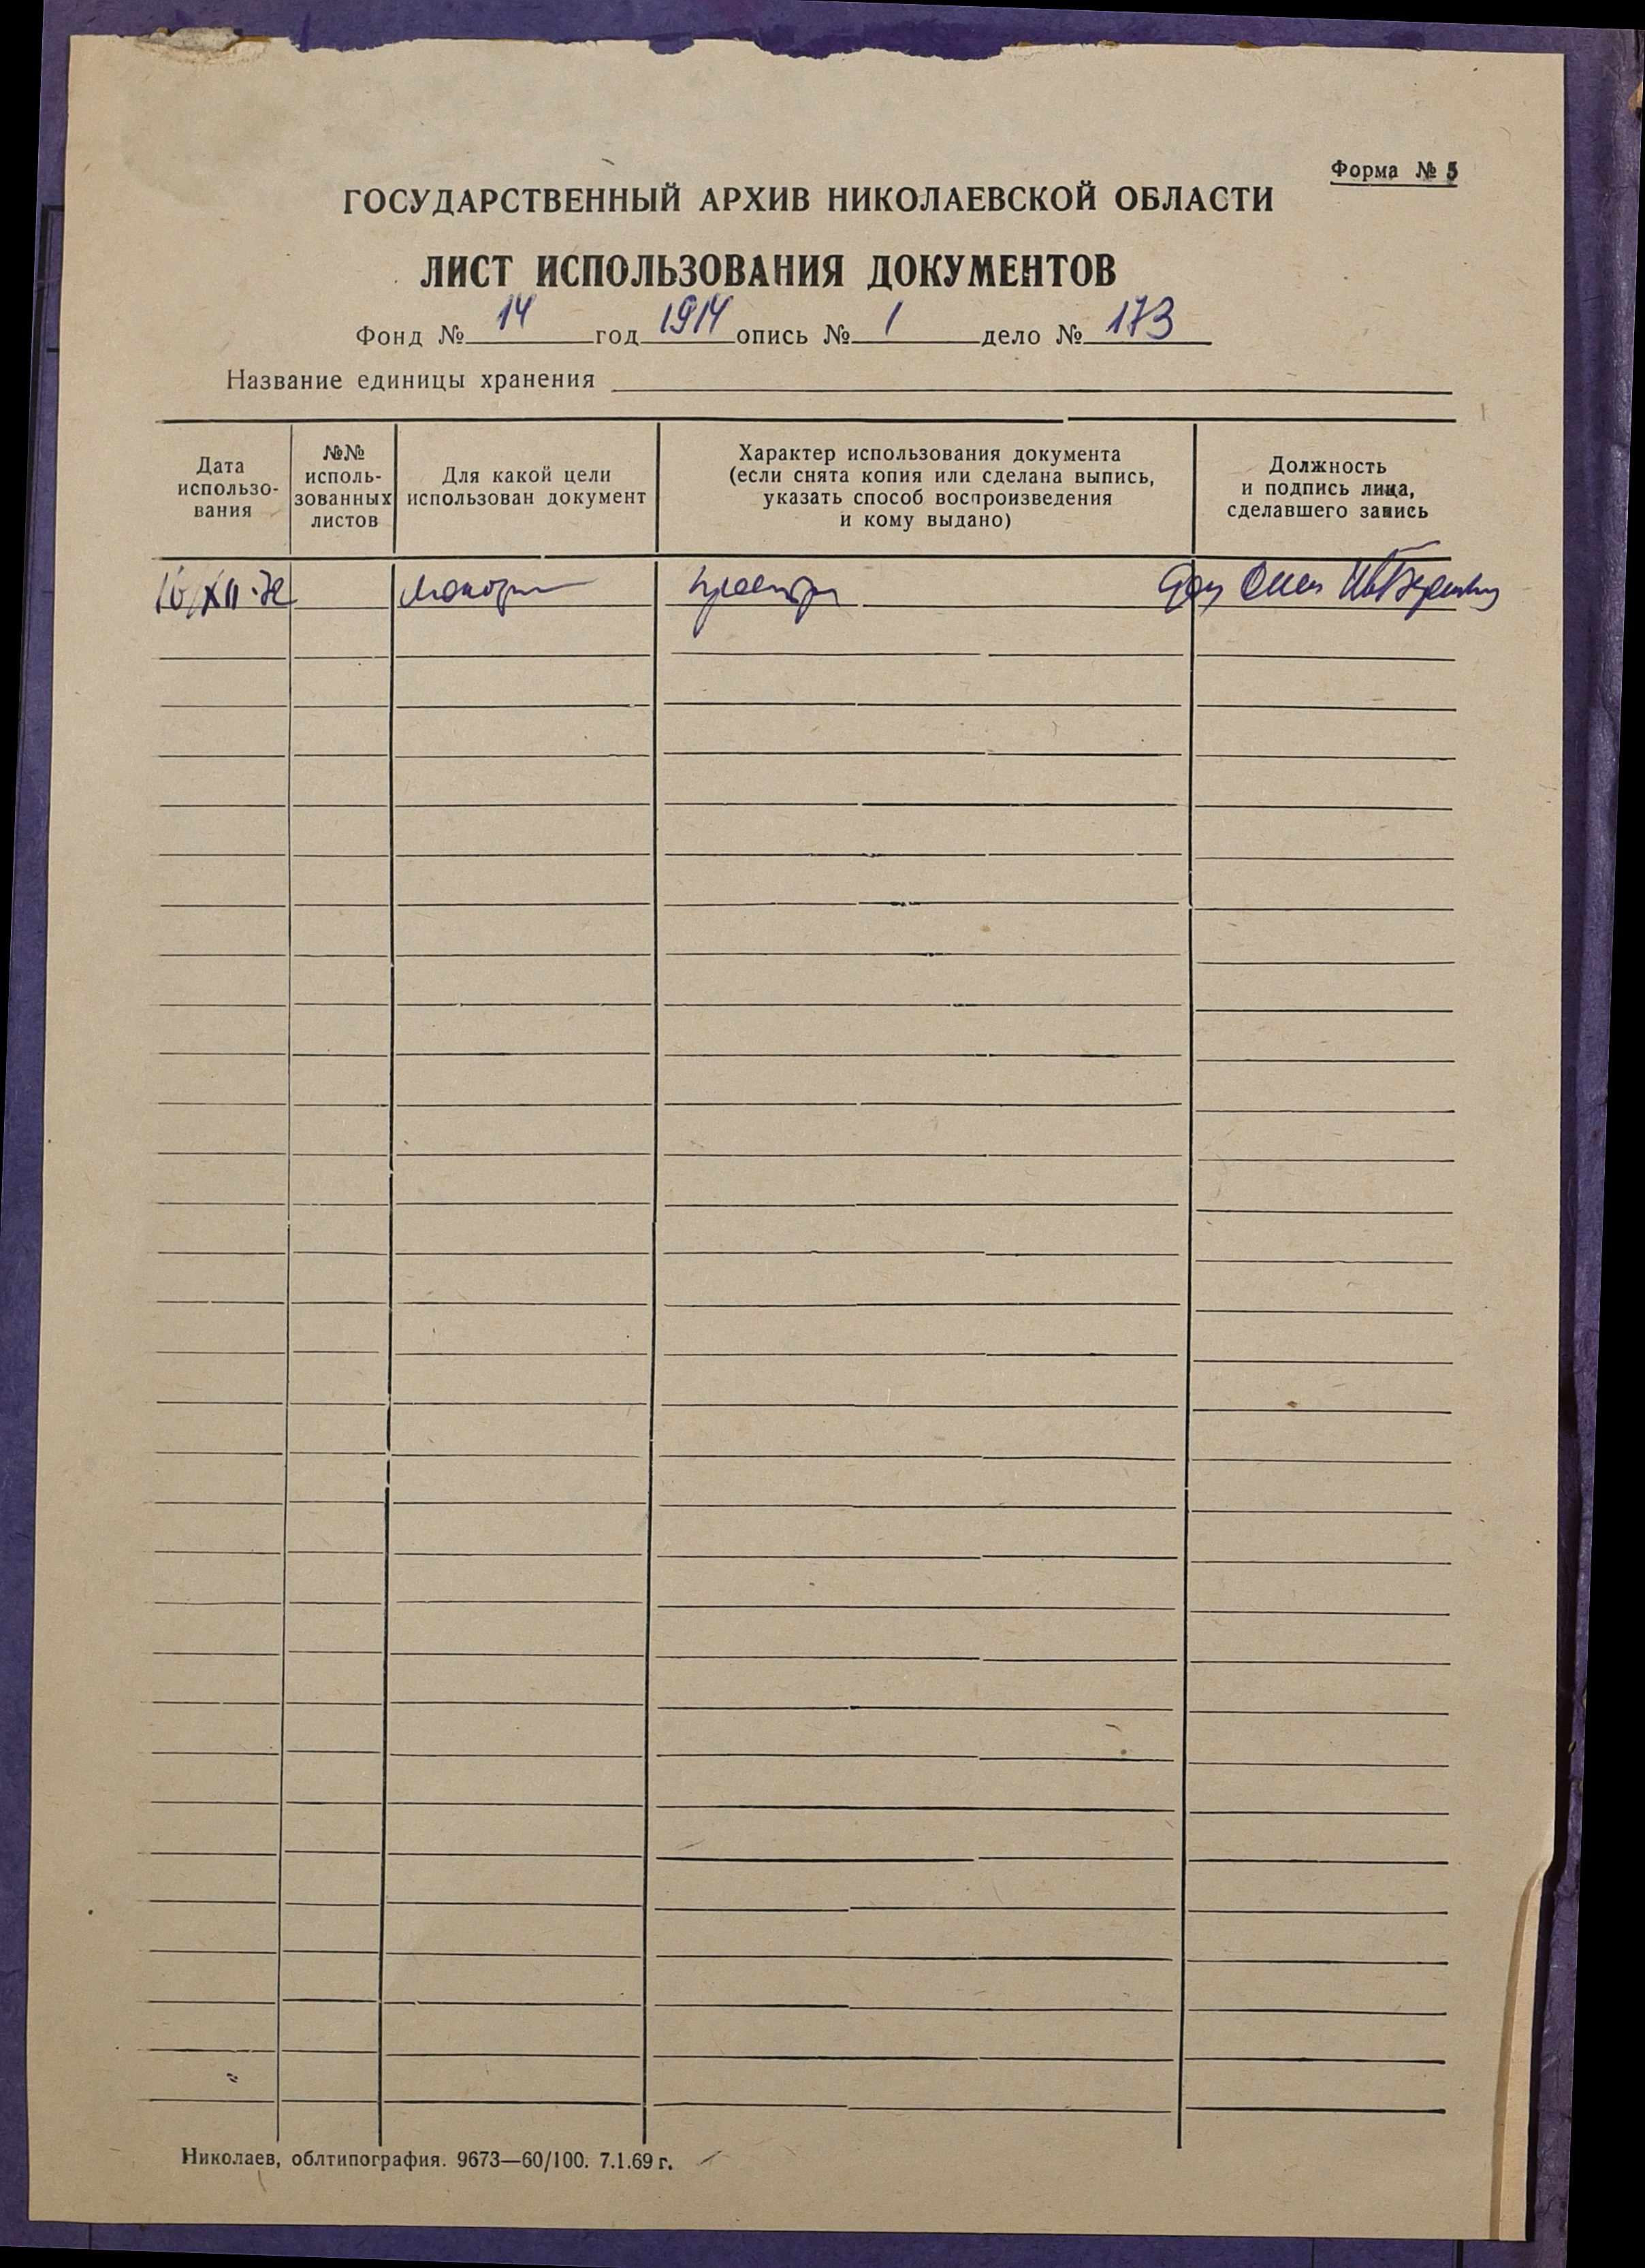 Форма № 5
ГОСУДАРСТВЕННЫЙ АРХИВ НИКОЛАЕВСКОЙ ОБЛАСТИ
ЛИСТ ИСПОЛЬЗОВАНИЯ ДОКУМЕНТОВ
Фонд № 14 год 1914 опись № 1 дело № 173
Название единицы хранения
Дата
использо-
вания
№№
исполь-
зованных
листов
Для какой цели
использован документ
Характер использования документа
(если снята копия или сделана выпись,
указать способ воспроизведения
и кому выдано)
Должность
и подпись лица,
сделавшего запись
просмотр
Николаев, облтипография. 9673—60/100. 7.1.69 г.